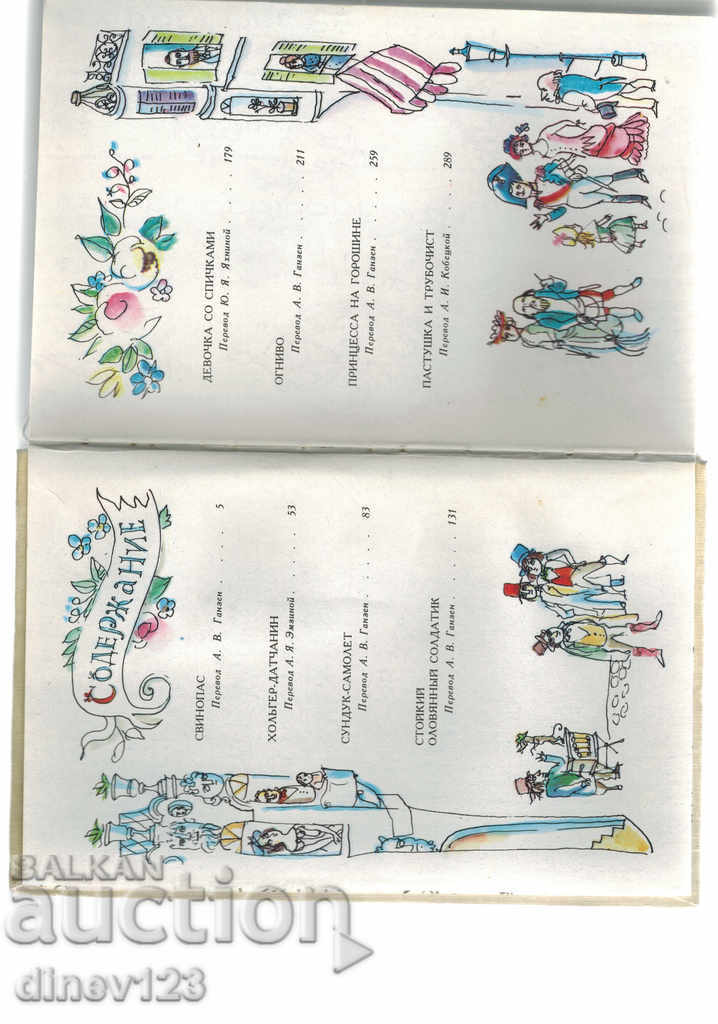 СОДЕРЖАНИЕ
СВИНОПАС
Перевод А. В. Ганзен . . . . . 5
ХОЛЬГЕР-ДАТЧАНИН
Перевод А. Я. Эмзиной . . . . 53
СУНДУК-САМОЛЕТ
Перевод А. В. Ганзен . . . . . 83
СТОЙКИЙ
ОЛОВЯННЫЙ СОЛДАТИК
Перевод А. В. Ганзен . . . . . . 131
ДЕВОЧКА СО СПИЧКАМИ
Перевод Ю. Я. Яхниной . . . . 179
ОГНИВО
Перевод А. В. Ганзен . . . . . 211
ПРИНЦЕССА НА ГОРОШИНЕ
Перевод А. В. Ганзен . . . . . 259
ПАСТУШКА И ТРУБОЧИСТ
Перевод А. И. Кобецкой . . . . 289
BALKAN
auction
dinev123